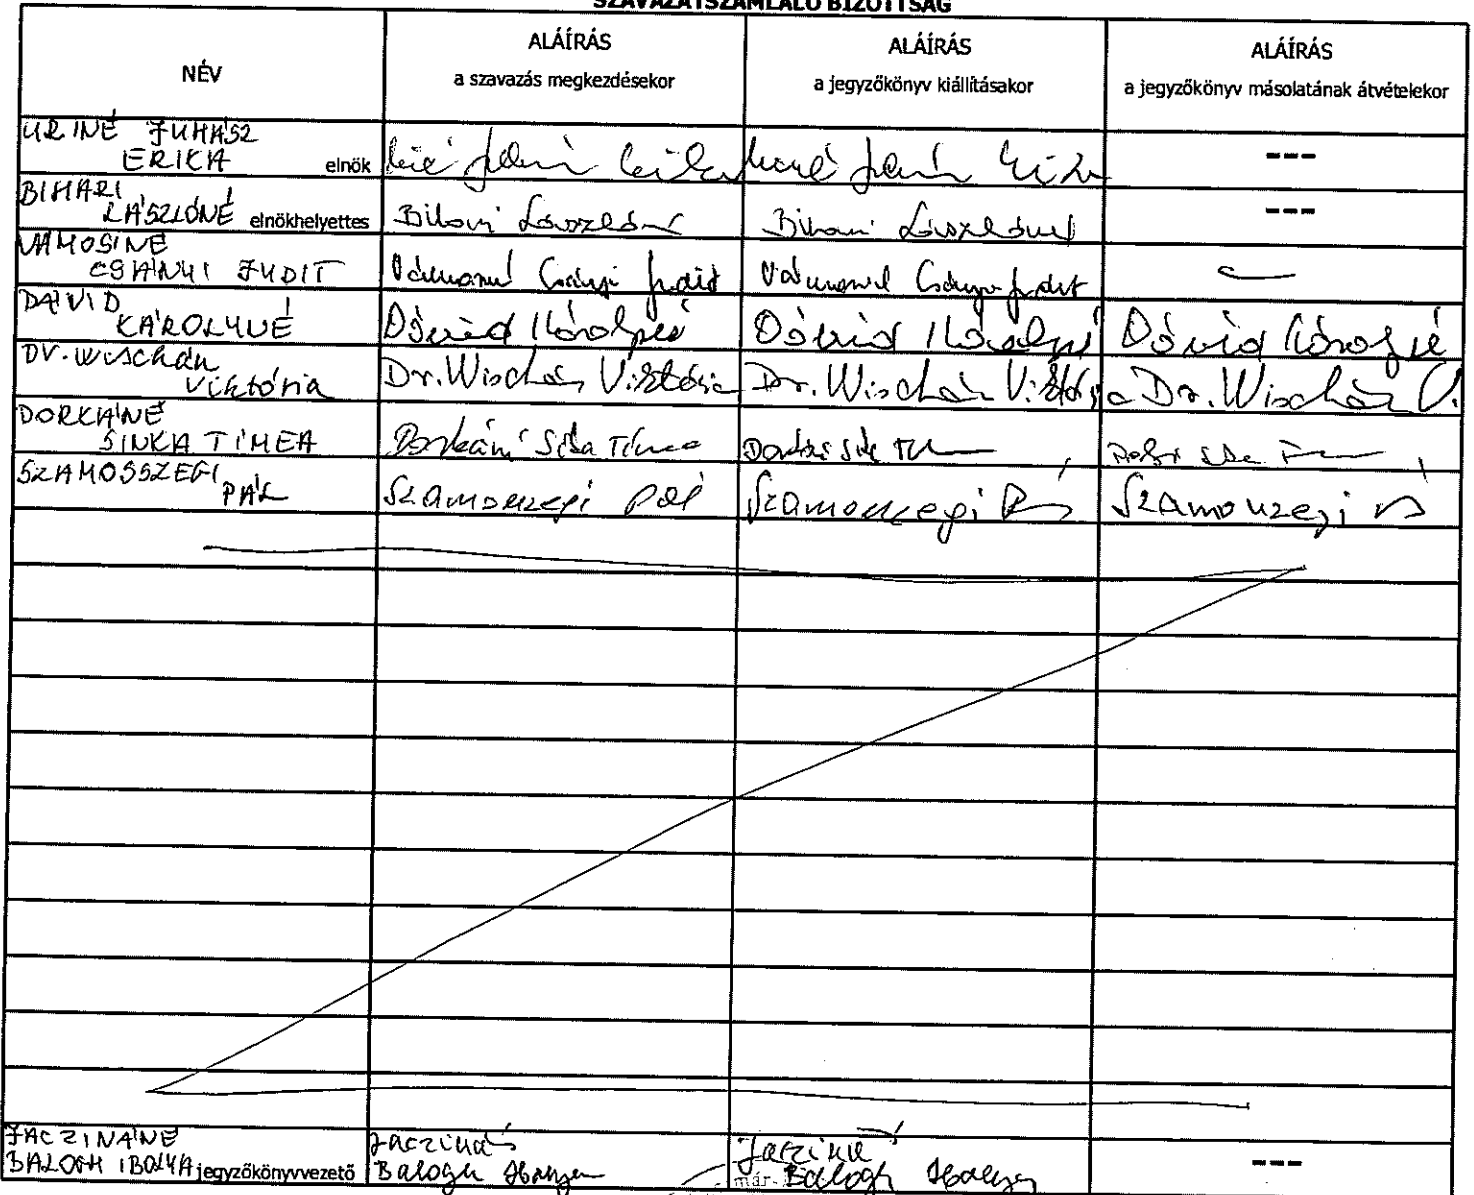 SZAVAZATSZÁMLÁLÓ BIZOTTSÁG
NÉV
ALÁÍRÁS
a szavazás megkezdésekor
ALÁÍRÁS
a jegyzőkönyv kiállításakor
ALÁÍRÁS
a jegyzőkönyv másolatának átvételekor
URINÉ JUHÁSZ
ERIKA elnök
---
BIHARI
LÁSZLÓNÉ elnökhelyettes
Bihari Lászlóné
Bihari Lászlóné
---
VÁMOSINÉ
CSÁNYI JUDIT
Vámosiné Csányi Judit
Vámosiné Csányi Judit
DÁVID
KÁROLYNÉ
Dávid Károlyné
Dávid Károlyné
Dávid Károlyné
Dr. Wischán
Viktória
Dr. Wischán Viktória
Dr. Wischán Viktória
Dr. Wischán V.
DORKÁNÉ
SINKA TÍMEA
Dorkáné Sinka Tímea
SZAMOSSZEGI
PÁL
Szamosszegi Pál
Szamosszegi P
Szamosszegi P
JACZINÁNÉ
BALOGH IBOLYA jegyzőkönyvvezető
Jacziná
Balogh Ibolya
Jacziná
már.
Balogh Ibolya
---